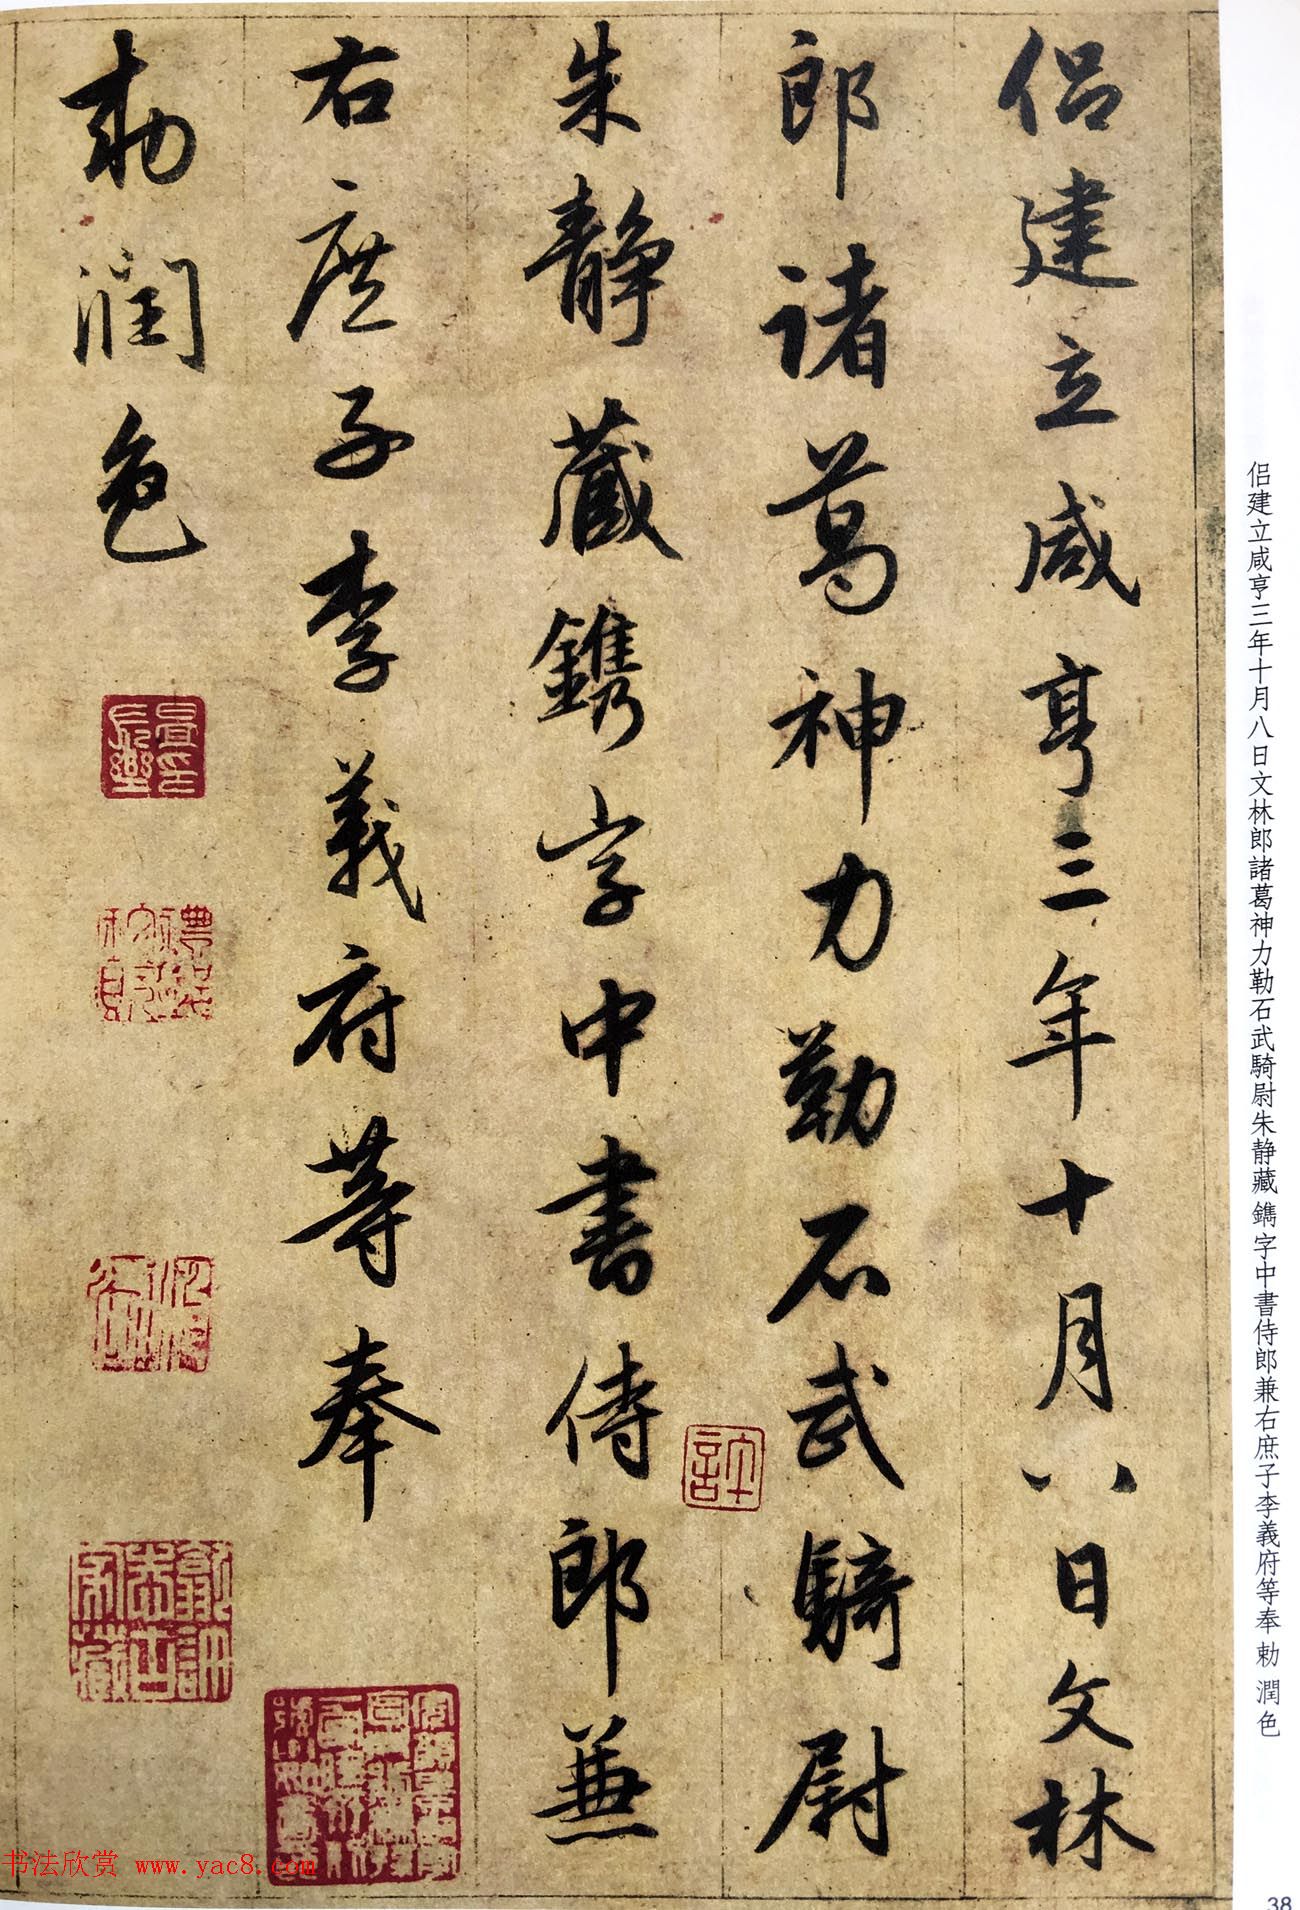 侣建立咸亨三年十月八日文林
郎諸葛神力勒石武騎尉
朱静藏鐫字中書侍郎兼
右庶子李義府等奉
勅潤色
許
侣建立咸亨三年十月八日文林郎諸葛神力勒石武騎尉朱静藏鐫字中書侍郎兼右庶子李義府等奉勅潤色
书法欣赏 www.yac8.com
38